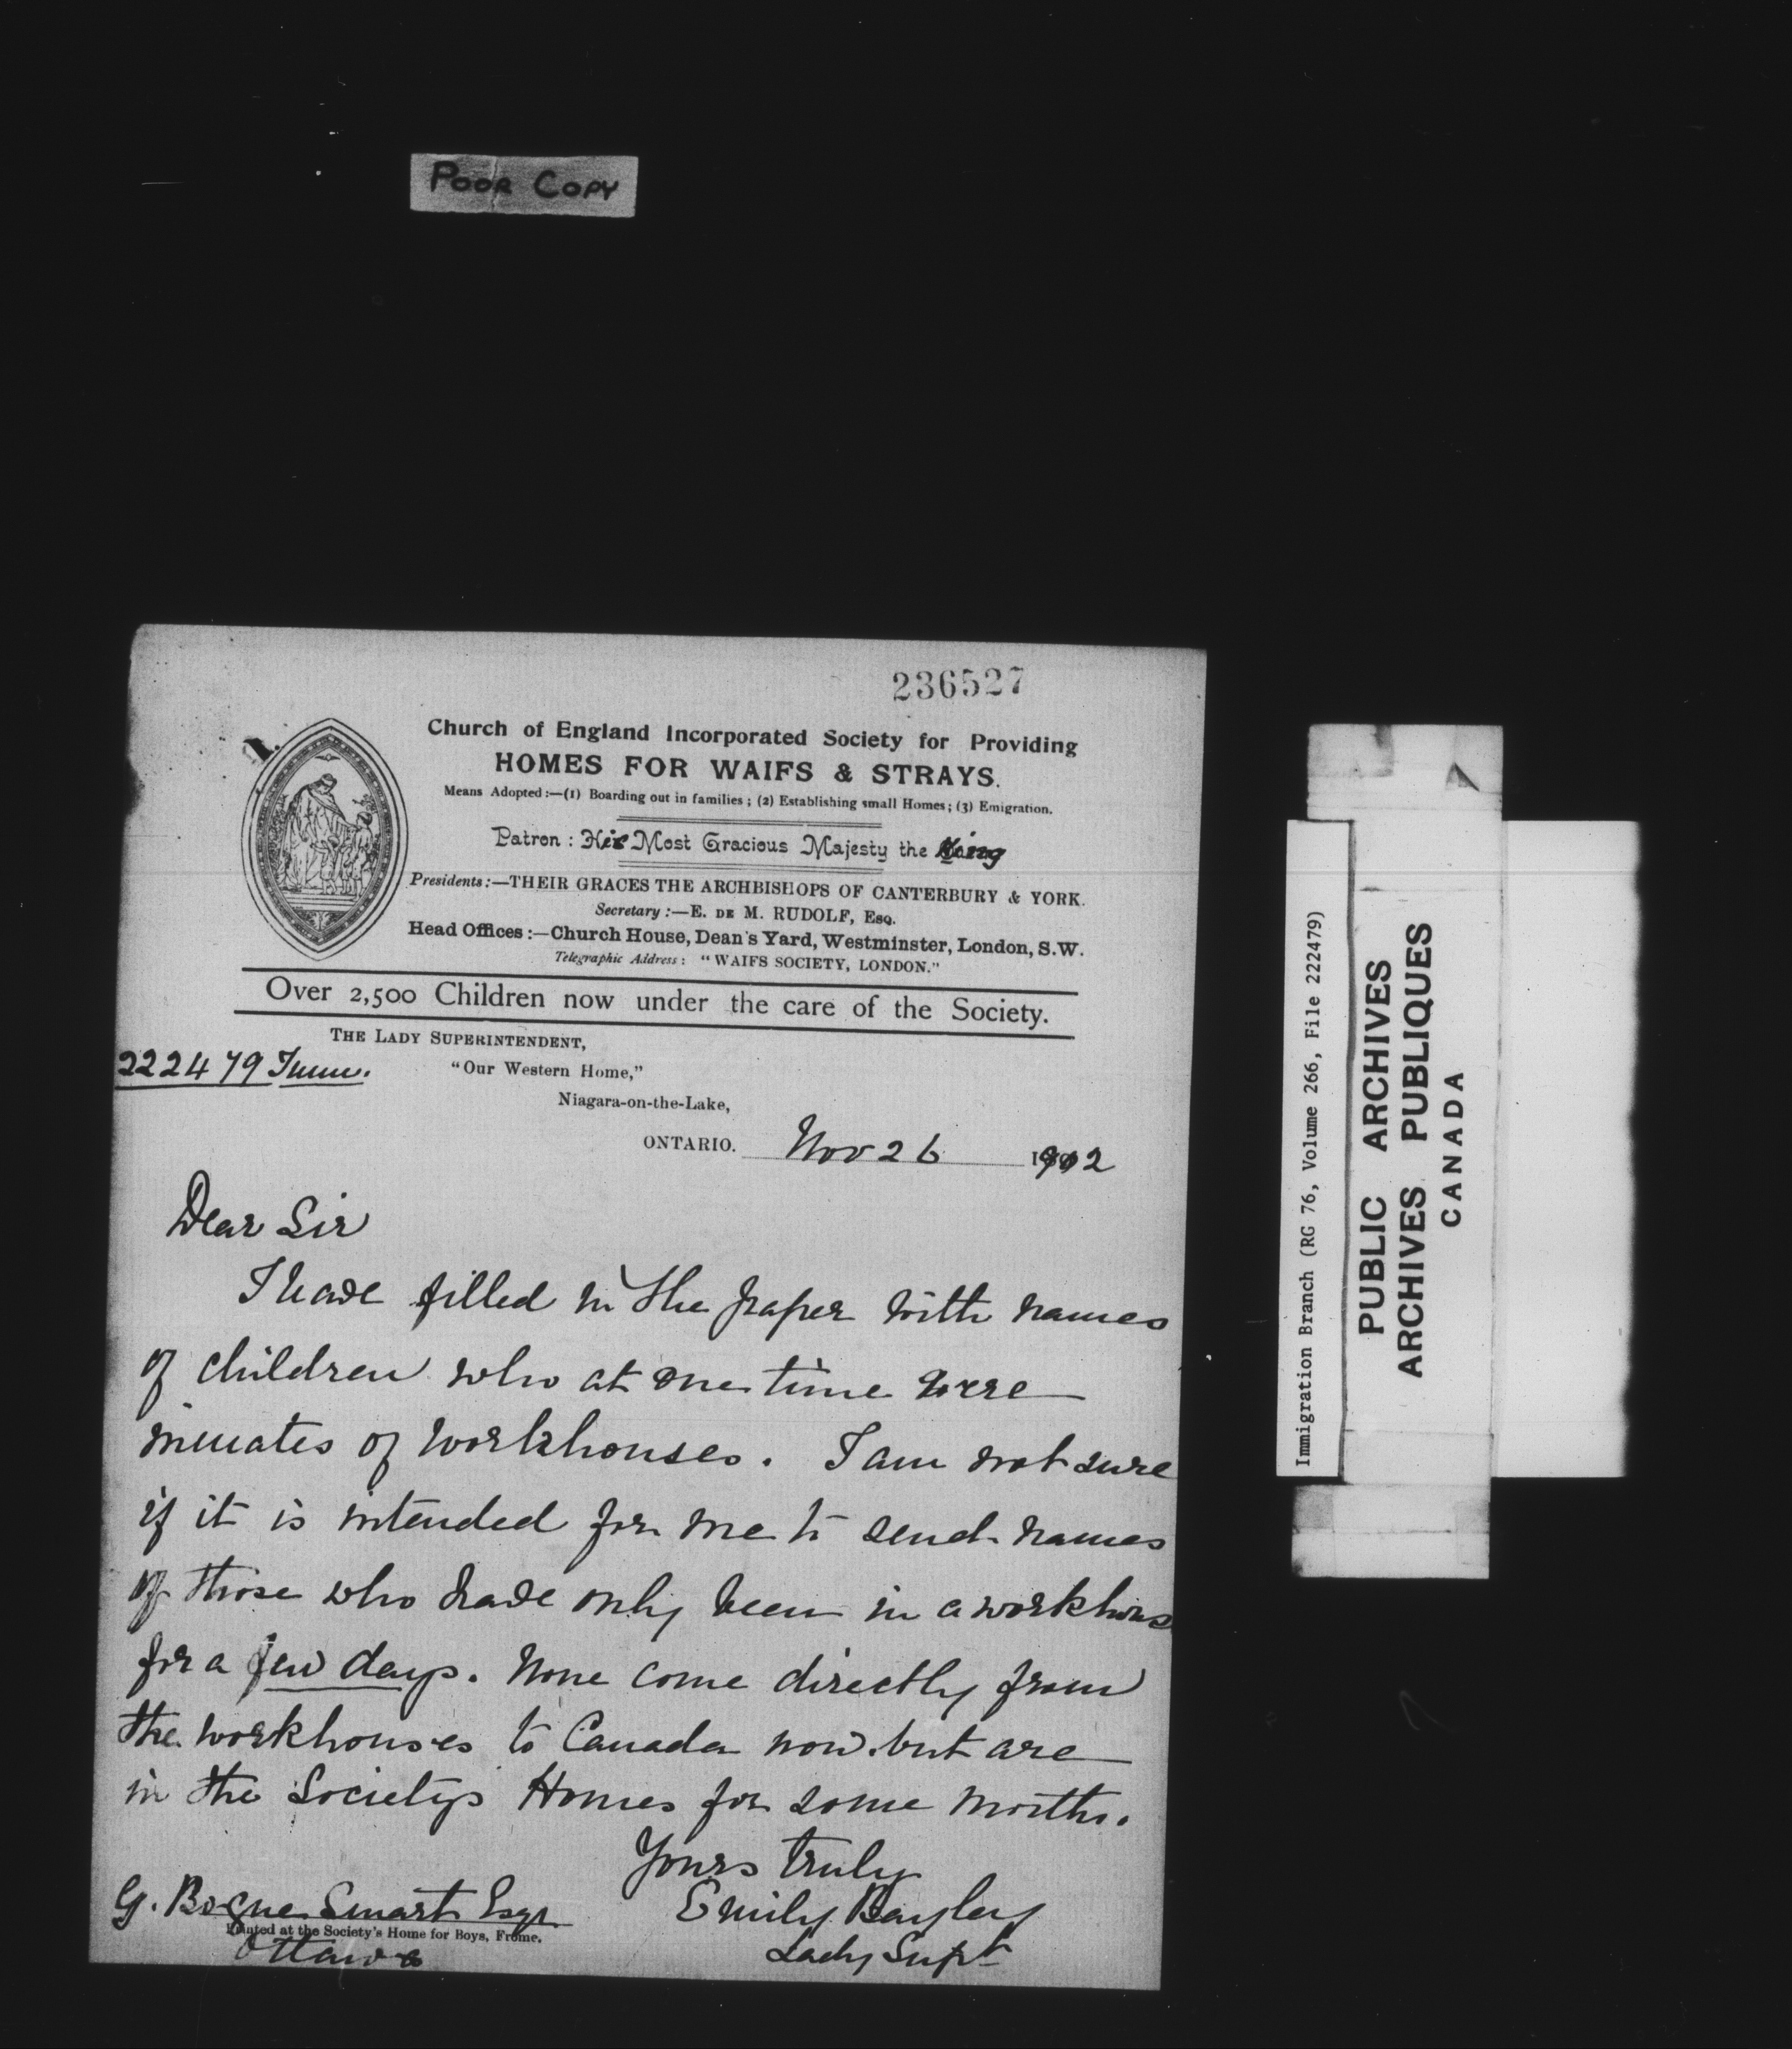 POOR COPY
236527
Church of England Incorporated Society for Providing
HOMES FOR WAIFS & STRAYS.
Means Adopted:—(1) Boarding out in families; (2) Establishing small Homes; (3) Emigration.
Patron: His Most Gracious Majesty the King
Presidents:—THEIR GRACES THE ARCHBISHOPS OF CANTERBURY & YORK.
Secretary:—E. DE M. RUDOLF, ESQ.
Head Offices:—Church House, Dean's Yard, Westminster, London, S.W.
Telegraphic Address: "WAIFS SOCIETY, LONDON."
Over 2,500 Children now under the care of the Society.
THE LADY SUPERINTENDENT,
222479 Imm.
"Our Western Home,"
Niagara-on-the-Lake,
ONTARIO. Nov 26 1902
Dear Sir
I have filled in the paper with names
of children who at one time were
inmates of workhouses. I am not sure
if it is intended for me to send names
of those who have only been in a workhouse
for a few days. None come directly from
the workhouses to Canada now but are
in the Societys Homes for some months.
Yours truly
Emily Bayley
Lady Supt
G. Bogue Smart Esqr
Printed at the Society's Home for Boys, Frome.
Ottawa
Immigration Branch (RG 76, Volume 266, File 222479)
PUBLIC ARCHIVES
ARCHIVES PUBLIQUES
CANADA